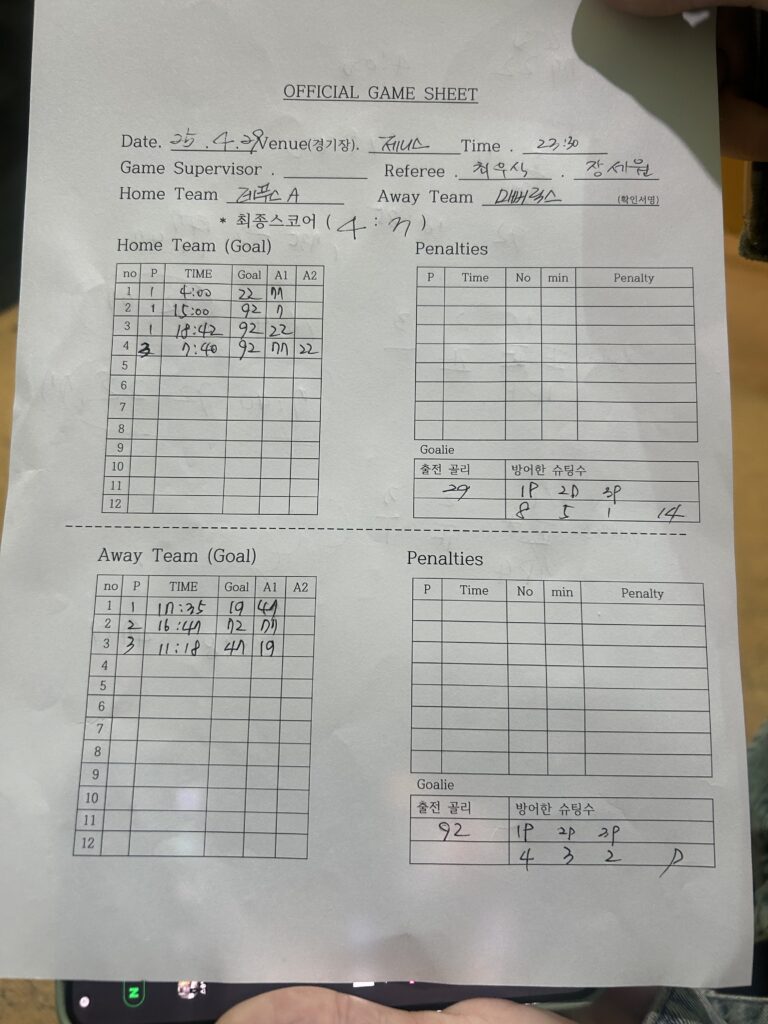 OFFICIAL GAME SHEET
Date. 25.4.29 Venue(경기장). 제니스 Time . 22:30
Game Supervisor . Referee . 최우식 . 장세원
Home Team A Away Team 매버릭스 (확인서명)
* 최종스코어 ( 4 : 3 )
Home Team (Goal)
no P TIME Goal A1 A2
1 1 4:00 22 77
2 1 15:00 92 7
3 1 18:42 92 22
4 3 7:40 92 77 22
5
6
7
8
9
10
11
12
Penalties
P Time No min Penalty
Goalie
출전 골리 방어한 슈팅수
29 1P 2P 3P
8 5 1 14
Away Team (Goal)
no P TIME Goal A1 A2
1 1 17:35 19 47
2 2 16:47 72 77
3 3 11:18 47 19
4
5
6
7
8
9
10
11
12
Penalties
P Time No min Penalty
Goalie
출전 골리 방어한 슈팅수
92 1P 2P 3P
4 3 2 9
N